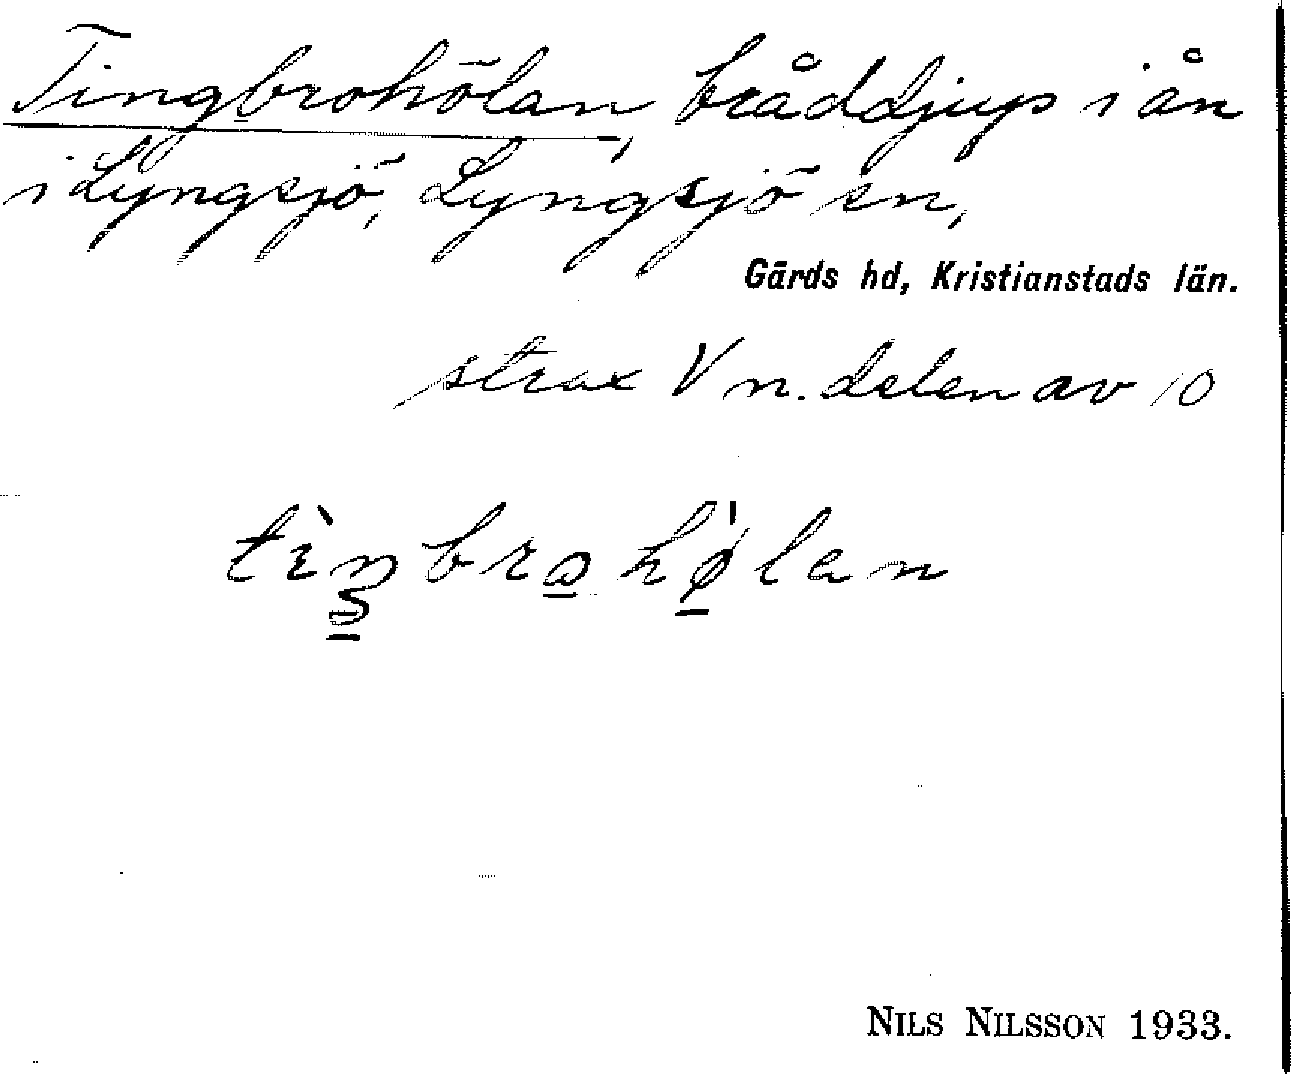 Tingbrohölan, bråddjup i ån
i Lyngsjö, Lyngsjö sn,
Gärds hd, Kristianstads län.
strax V n. delen av 10
tìŋbrohø̀lan
NILS NILSSON 1933.